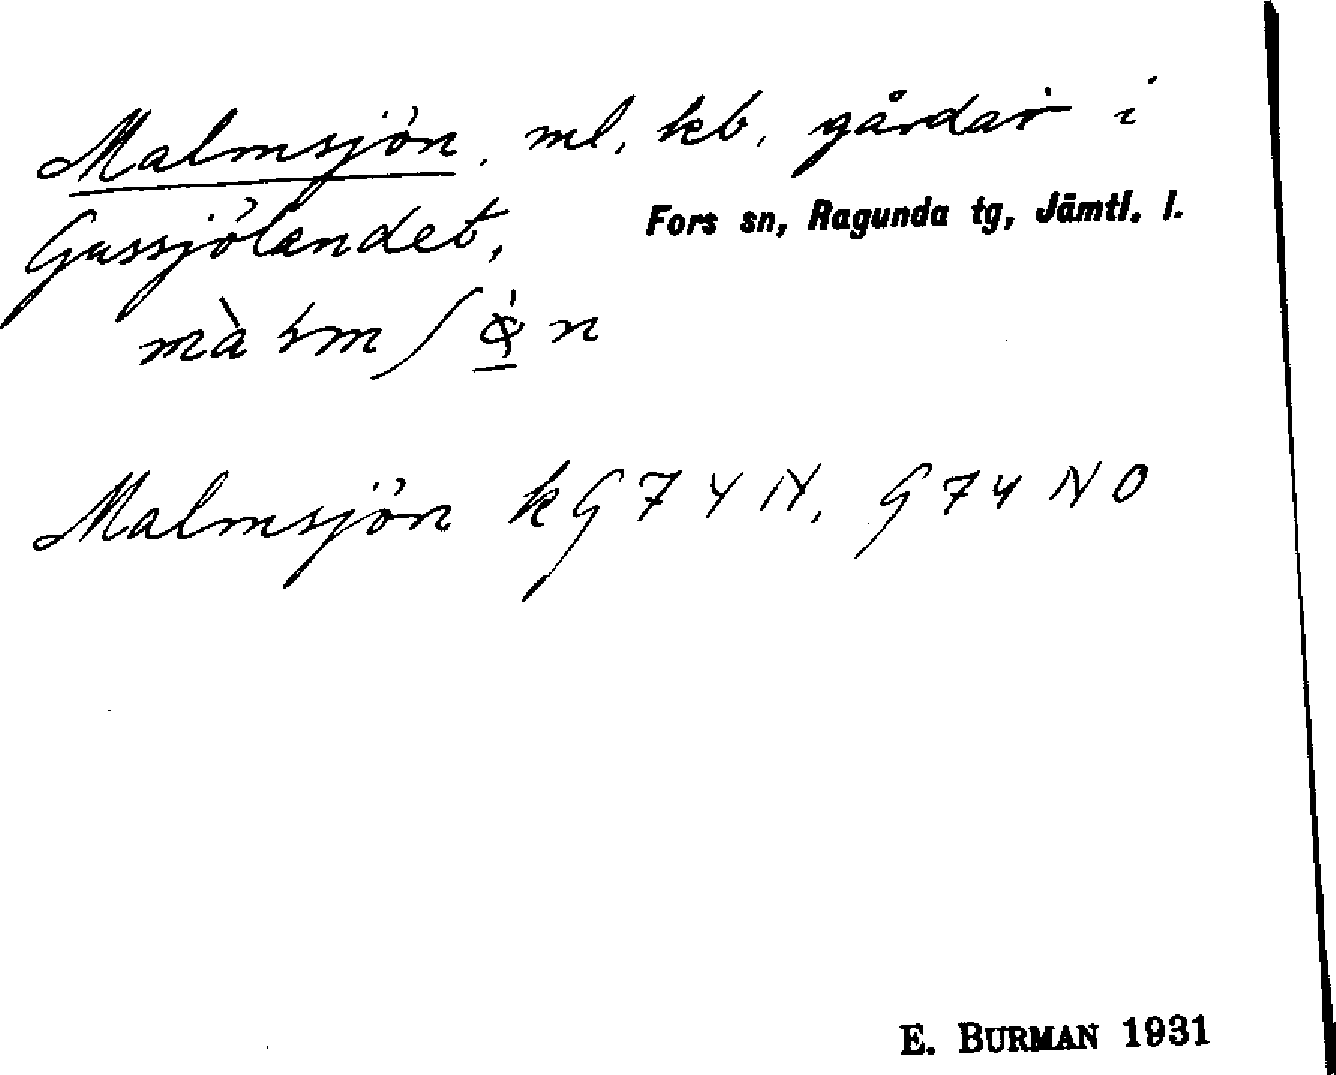 Malmsjön, ml, kb, gårdar i
Gussjölandet, Fors sn, Ragunda tg, Jämtl. l.
Malmsjön kG74N, G74NO
E. BURMAN 1931